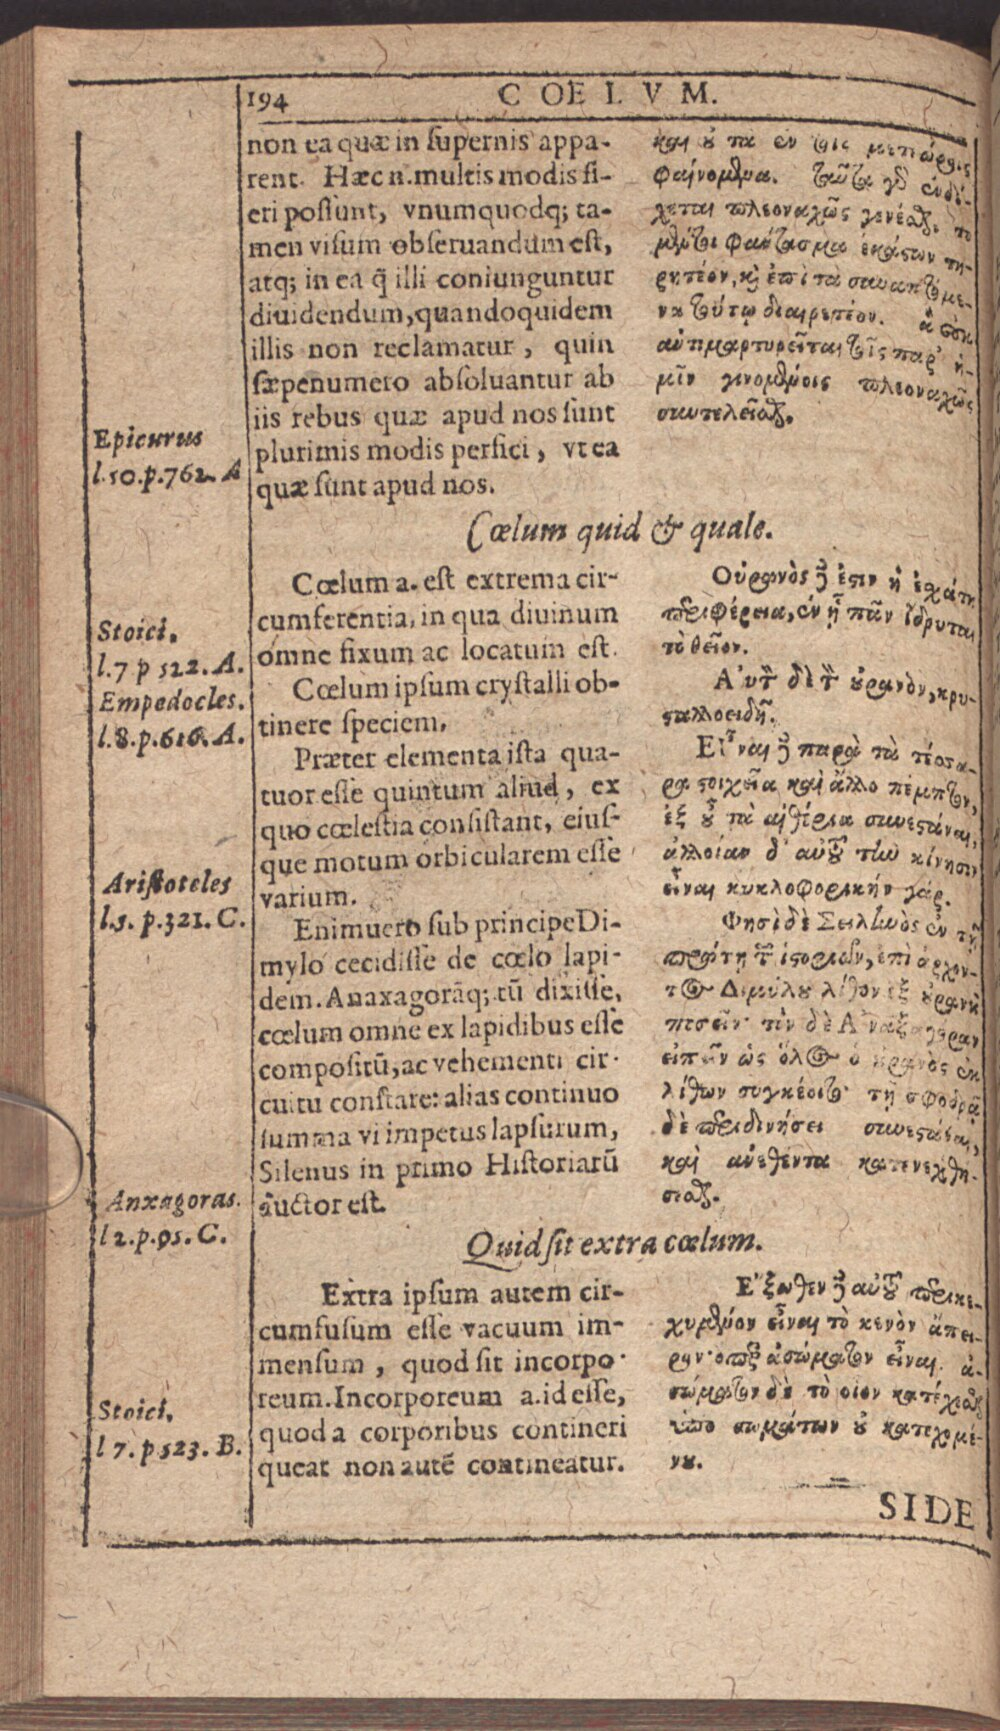 194
COELVM.
non ea quæ in ſupernis appa-
rent. Hæc n. multis modis fi-
eri poſſunt, vnumquodq; ta-
men viſum obſeruandum eſt,
atq; in ea q̃ illi coniunguntur
diuidendum, quandoquidem
illis non reclamatur, quin
ſæpenumero abſoluantur ab
iis rebus quæ apud nos ſunt
plurimis modis perfici, vt ea
quæ ſunt apud nos.
Epicurus
l.10.p.762. A
καὶ ȣ̓ τὰ ἐν τοῖς μετεώροις
φαινόμϟυα. ταῦτα γὸ ἐνδέ-
χεται πλεοναχῶς γενέσθαι, τὸ
μϟύτοι φάντασμα ἑκάστων τη-
ρητέον, κ̀ ἐπὶ τὰ συναπτόμε-
να τούτῳ διαιρετέον. ἃ οὐκ
ἀντιμαρτυρεῖται τοῖς παρ᾽ ἡ-
μῖν γινομϟύοις πλεοναχῶς
συντελεῖσθαι.
Cœlum quid & quale.
Cœlum a. eſt extrema cir-
cumferentia, in qua diuinum
omne fixum ac locatum eſt.
Cœlum ipſum cryſtalli ob-
tinere ſpeciem.
Præter elementa iſta qua-
tuor eſſe quintum aliud, ex
quo cœleſtia conſiſtant, eiuſ-
que motum orbicularem eſſe
varium.
Enimuero ſub principe Di-
mylo cecidiſſe de cœlo lapi-
dem. Anaxagorãq; tũ dixiſſe,
cœlum omne ex lapidibus eſſe
compoſitũ, ac vehementi cir-
cuitu conſtare: alias continuo
ſumma vi impetus lapſurum,
Silenus in primo Hiſtoriarũ
auctor eſt.
Stoici.
l.7 p 522. A.
Empedocles.
l.8.p.616. A.
Ariſtoteles
l.5. p.321. C.
Anxagoras.
l 2.p.95. C.
Οὐρανὸς δ̓ ἐστιν ἡ ἐσχάτη
περιφέρεια, ἐν ᾗ πᾶν ἵδρυται
τὸ θεῖον.
Αὐτὸν δὲ τὸν ȣ̓ρανὸν, κρυ-
σταλλοειδῆ.
Εἶναι δ̓ παρὰ τὰ τέσσα-
ρα στοιχεῖα καὶ ἄλλο πέμπτον,
ἐξ ȣ̓ τὰ αἰθέρια συνεστάναι,
ἀλλοίαν δ᾽ αὐτοῦ τὴν κίνησιν
εἶναι κυκλοφορικὴν γάρ.
Φησὶ δὲ Σειληνὸς ἐν τῇ
πρώτῃ τῶν ἱστοριῶν, ἐπὶ ἄρχον-
τος Διμύλȣ λίθον ἐξ ȣ̓ρανȣ̃
πεσεῖν· τὸν δὲ Ἀναξαγόραν
εἰπεῖν ὡς ὅλος ὁ ȣ̓ρανὸς ἐκ
λίθων συγκέοιτο· τῇ σφοδρᾷ
δὲ περιδινήσει συνεστάναι,
καὶ ἀνεθέντα κατενεχθή-
σεσθαι.
Quid ſit extra cœlum.
Extra ipſum autem cir-
cumfuſum eſſe vacuum im-
menſum, quod ſit incorpo-
reum. Incorporeum a. id eſſe,
quod a corporibus contineri
queat non autẽ contineatur.
Stoici.
l 7. p 523. B.
Ἔξωθεν δ̓ αὐτοῦ περικε-
χυμϟύον εἶναι τὸ κενὸν ἄπει-
ρον· ὅπερ ἀσώματον εἶναι. ἀ-
σώματον δὲ τὸ οἷον κατέχεσθαι
ὑπὸ σωμάτων ȣ̓ κατεχομέ-
νȣ.
SIDE